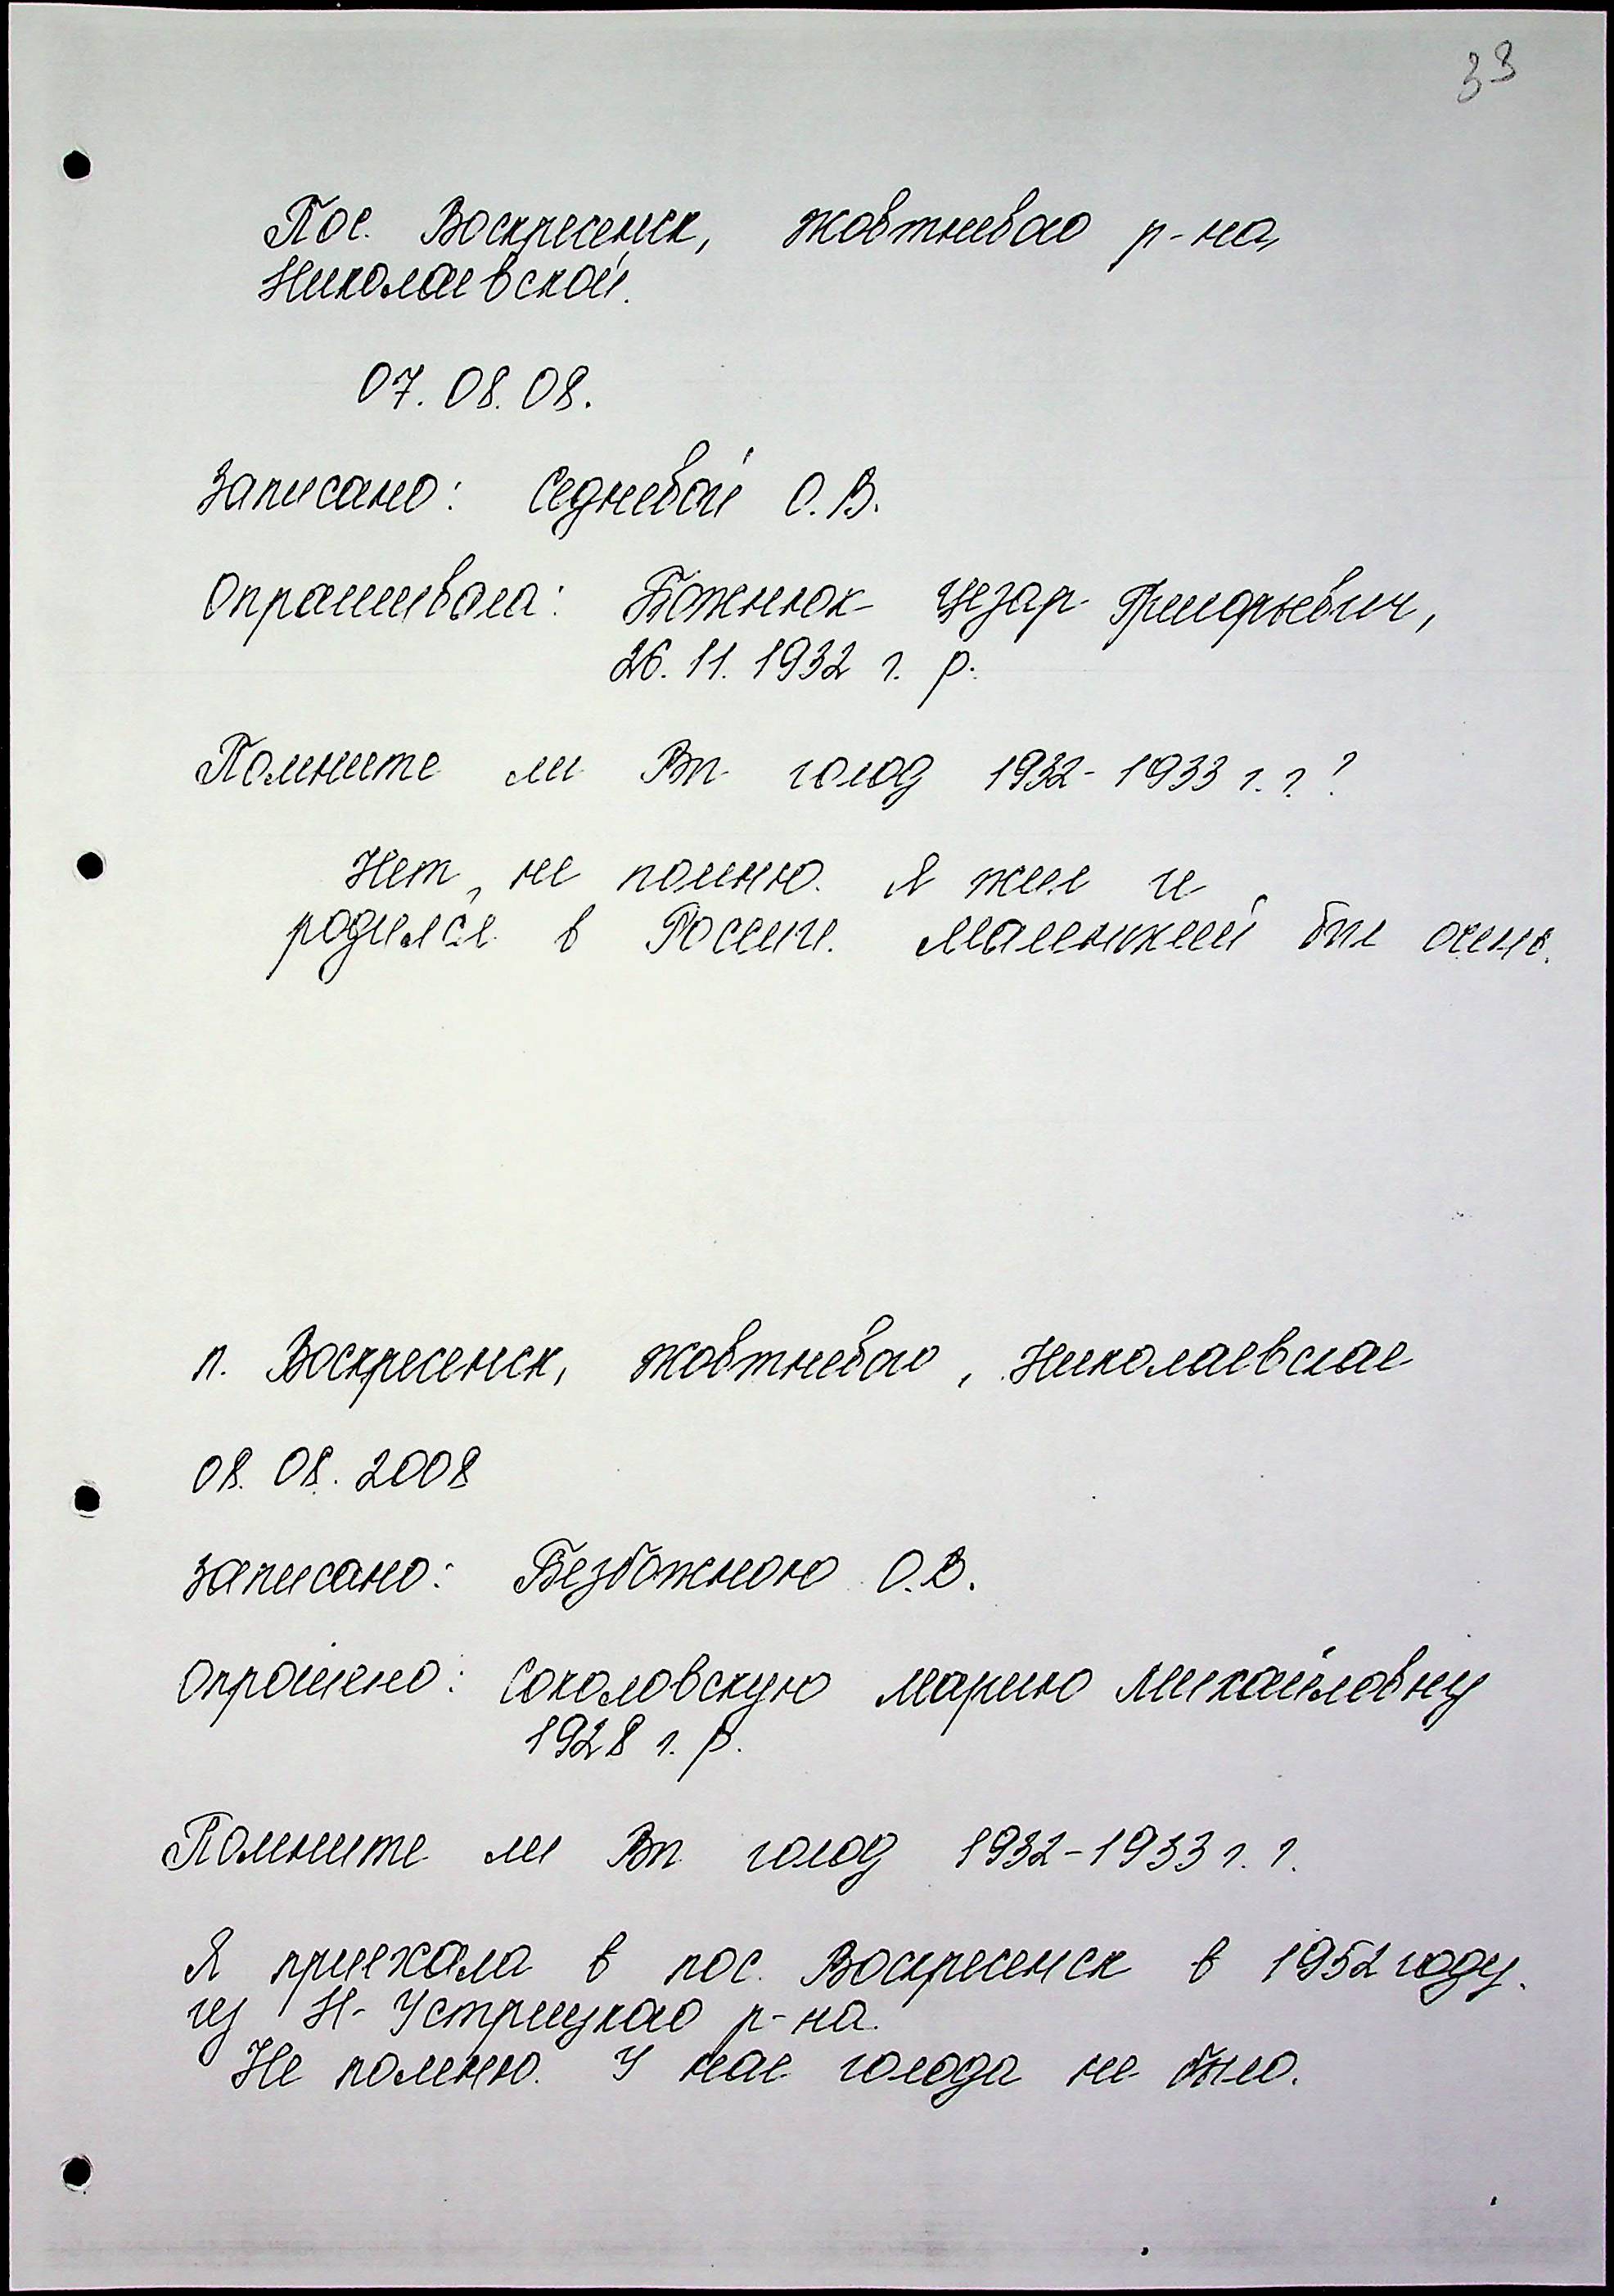 33
Пос. Воскресенск, Жовтневого р-на,
Николаевской.
07.08.08.
Записано: Седневой О.В.
Опрашивала: Божнюк Цезар Григорьевич,
26.11.1932 г. р.
Помните ли Вы голод 1932-1933 г.г.?
Нет, не помню. Я жил и
родился в России. Маленький был очень.
п. Воскресенск, Жовтневого, Николаевское
08.08.2008
Записано: Безбожною О.В.
Опрошено: Соколовскую Марию Михайловну
1928 г. р.
Помните ли Вы голод 1932-1933 г. г.
Я приехала в пос. Воскресенск в 1952 году.
из Н-Устрицкого р-на.
Не помню. У нас голода не было.